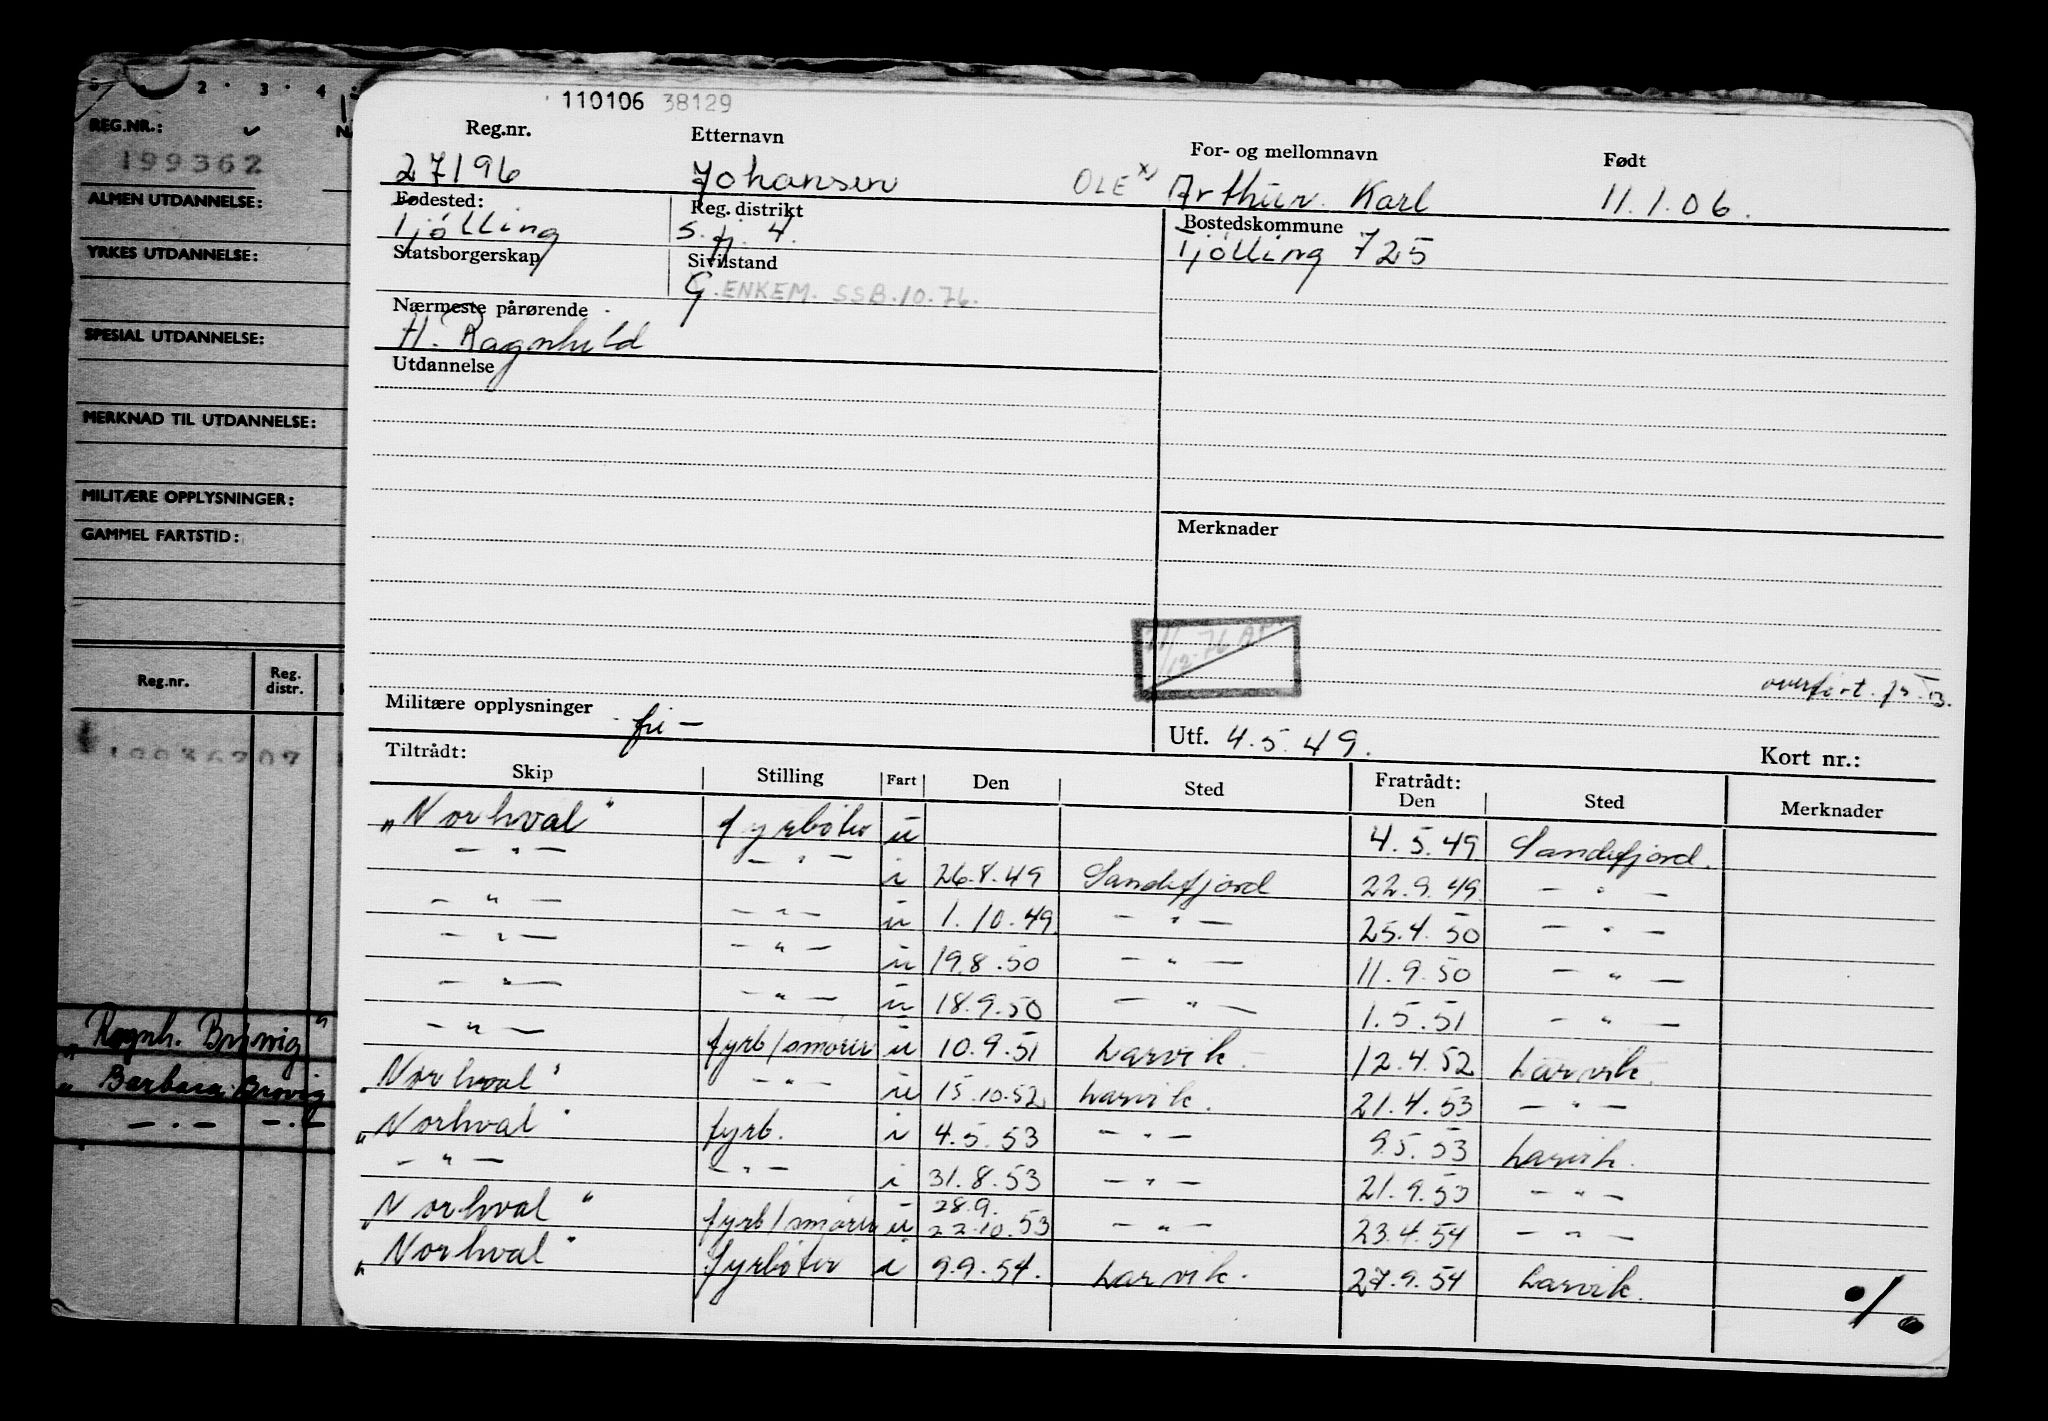 2 · 3 · 4
REG.NR.:
199362
ALMEN UTDANNELSE:
YRKES UTDANNELSE:
SPESIAL UTDANNELSE:
MERKNAD TIL UTDANNELSE:
MILITÆRE OPPLYSNINGER:
GAMMEL FARTSTID:
Reg.nr. Reg. distr.
"Ragnh. Brøvig"
" Barbara Brovig
— . — — . —
110106 38129
Reg.nr. Etternavn For- og mellomnavn Født
27196 Johansen OLE x) Arthur Karl 11.1.06.
Fødested: Reg. distrikt Bostedskommune
Tjölling S.fj. 4. Tjölling 725
Statsborgerskap Sivilstand
G. ENKEM. SSB.10.76.
Nærmeste pårørende
H. Ragnhild
Utdannelse
Merknader
12.76
overført
Militære opplysninger fri — Utf. 4.5.49. Kort nr.:
Tiltrådt: Fratrådt:
Skip Stilling Fart Den Sted Den Sted Merknader
"Norhval" fyrböter u 4.5.49 Sandefjord.
— " — — " — i 26.8.49 Sandefjord 22.9.49 — " —
— " — — " — u 1.10.49. — " — 25.4.50 — " —
— " — — " — u 19.8.50 — " — 11.9.50 — " —
— " — — " — u 18.9.50 — " — 1.5.51 — " —
— " — fyrb/smörer u 10.9.51 Larvik. 12.4.52 Larvik.
"Norhval" — " — u 15.10.52 Larvik. 21.4.53 — " —
"Norhval" fyrb. i 4.5.53 — " — 9.5.53 Larvik.
— " — — " — i 31.8.53 — " — 21.9.53 — " —
28.9.
"Norhval" fyrb/smörer u 22.10.53 — " — 23.4.54 — " —
"Norhval" fyrböter i 9.9.54. Larvik. 27.9.54 Larvik.